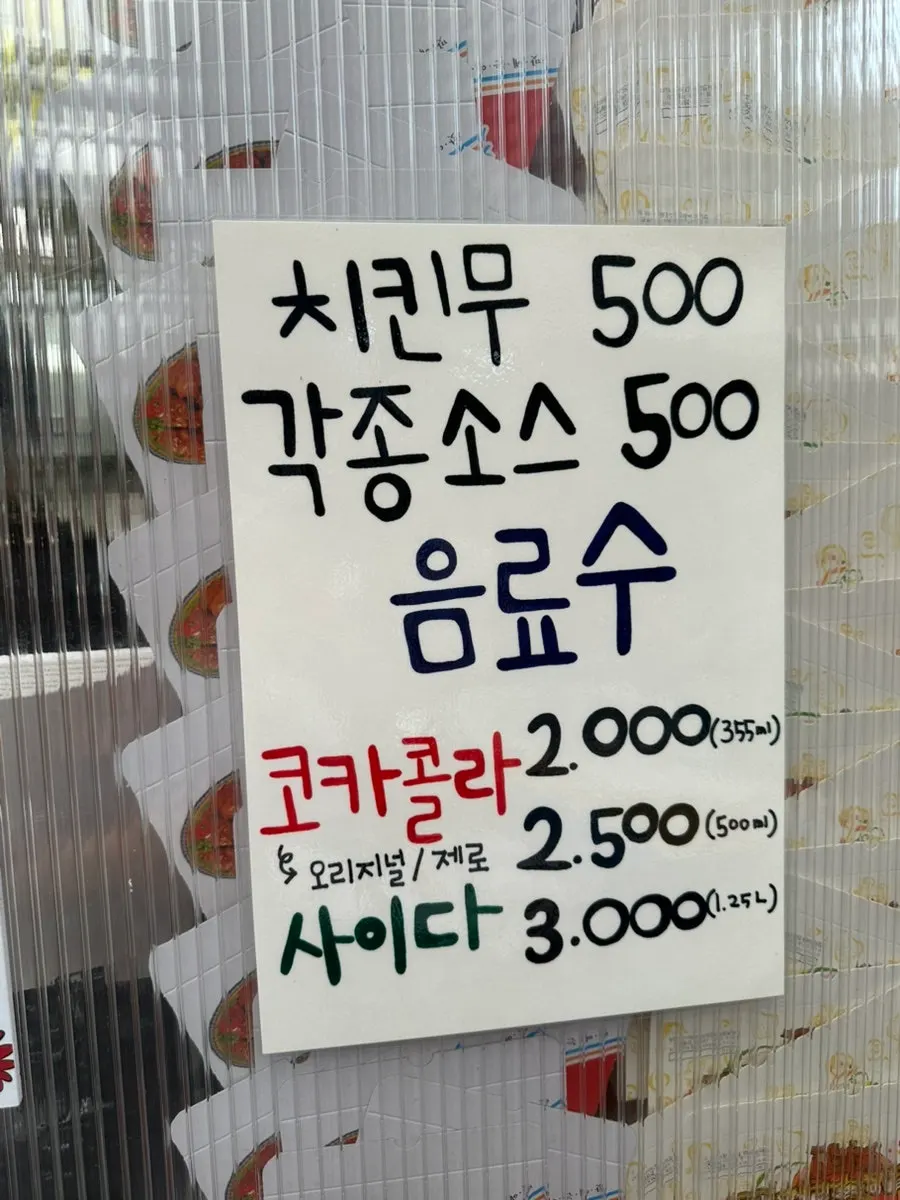 치킨무 500
각종소스 500
음료수
코카콜라 2.000(355ml)
2.500(500ml)
↳ 오리지널/제로
사이다 3.000(1.25L)